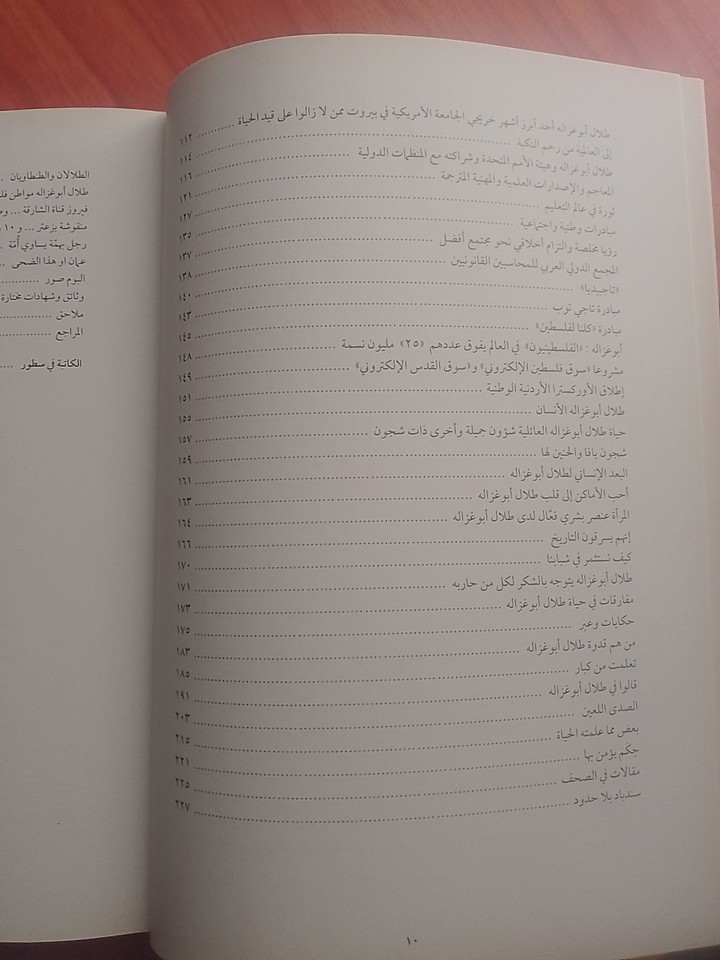 طلال أبوغزاله أحد أبرز أشهر خريجي الجامعة الأمريكية في بيروت ممن لا زالوا على قيد الحياة ............ ١١٢
إلى العالمية من رحم النكبة ............ ١١٤
طلال أبوغزاله وهيئة الأمم المتحدة وشراكته مع المنظمات الدولية ............ ١١٦
المعاجم والإصدارات العلمية والمهنية المترجمة ............ ١٢١
ثورة في عالم التعليم ............ ١٢٧
مبادرات وطنية واجتماعية ............ ١٣٥
رؤيا مخلصة والتزام أخلاقي نحو مجتمع أفضل ............ ١٣٧
المجمع الدولي العربي للمحاسبين القانونيين ............ ١٣٨
«تاجيبديا» ............ ١٤٠
مبادرة تاجي توب ............ ١٤٣
مبادرة «كلنا لفلسطين» ............ ١٤٥
أبوغزاله : «الفلسطينيون» في العالم يفوق عددهم «٢٥» مليون نسمة ............ ١٤٨
مشروعا «سوق فلسطين الإلكتروني» و«سوق القدس الإلكتروني» ............ ١٤٩
إطلاق الأوركسترا الأردنية الوطنية ............ ١٥١
طلال أبوغزاله الأنسان ............ ١٥٥
حياة طلال أبوغزاله العائلية شؤون جميلة وأخرى ذات شجون ............ ١٥٧
شجون يافا والحنين لها ............ ١٥٩
البعد الإنساني لطلال أبوغزاله ............ ١٦١
أحب الأماكن إلى قلب طلال أبوغزاله ............ ١٦٣
المرأة عنصر بشري فعّال لدى طلال أبوغزاله ............ ١٦٤
إنهم يسرقون التاريخ ............ ١٦٦
كيف نستثمر في شبابنا ............ ١٧٠
طلال أبوغزاله يتوجه بالشكر لكل من حاربه ............ ١٧١
مفارقات في حياة طلال أبوغزاله ............ ١٧٣
حكايات وعبر ............ ١٧٥
من هم قدوة طلال أبوغزاله ............ ١٨٣
تعلمت من كبار ............ ١٨٥
قالوا في طلال أبوغزاله ............ ١٩١
الصدى اللعين ............ ٢٠٣
بعض مما علمته الحياة ............ ٢١٥
حِكم يؤمن بها ............ ٢٢١
مقالات في الصحف ............ ٢٢٥
سندباد بلا حدود ............ ٢٢٧
١٠
الطلالان والطنطاويان ..
طلال أبوغزاله مواطن
فيروز قناة الشارقة ...
منقوشة بزعتر ... و ١٠
رجل بهمّة يساوي أمّة
عمان او هذا الضحى ..
البوم صور ............
وثائق وشهادات مختارة
ملاحق ............
المراجع ............
الكاتبة في سطور ....